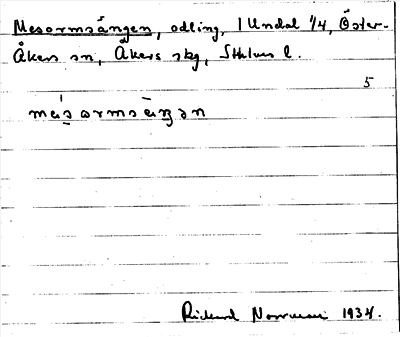 Mesormsängen, odling, 1 Undal 1/4, Öster-
Åkers sn, Åkers skg, Sthlms l.
5
Rickard 1934.